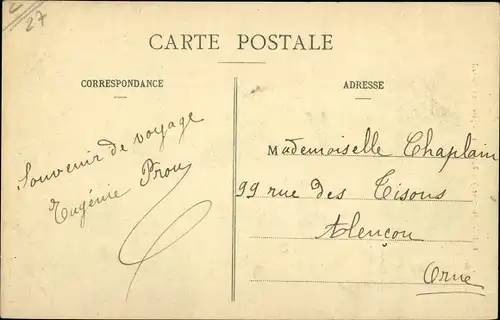 27
CARTE POSTALE
CORRESPONDANCE
ADRESSE
Souvenir de voyage
Eugénie Prou
Mademoiselle Chaplain
99 rue des Tisons
Alençon
Orne